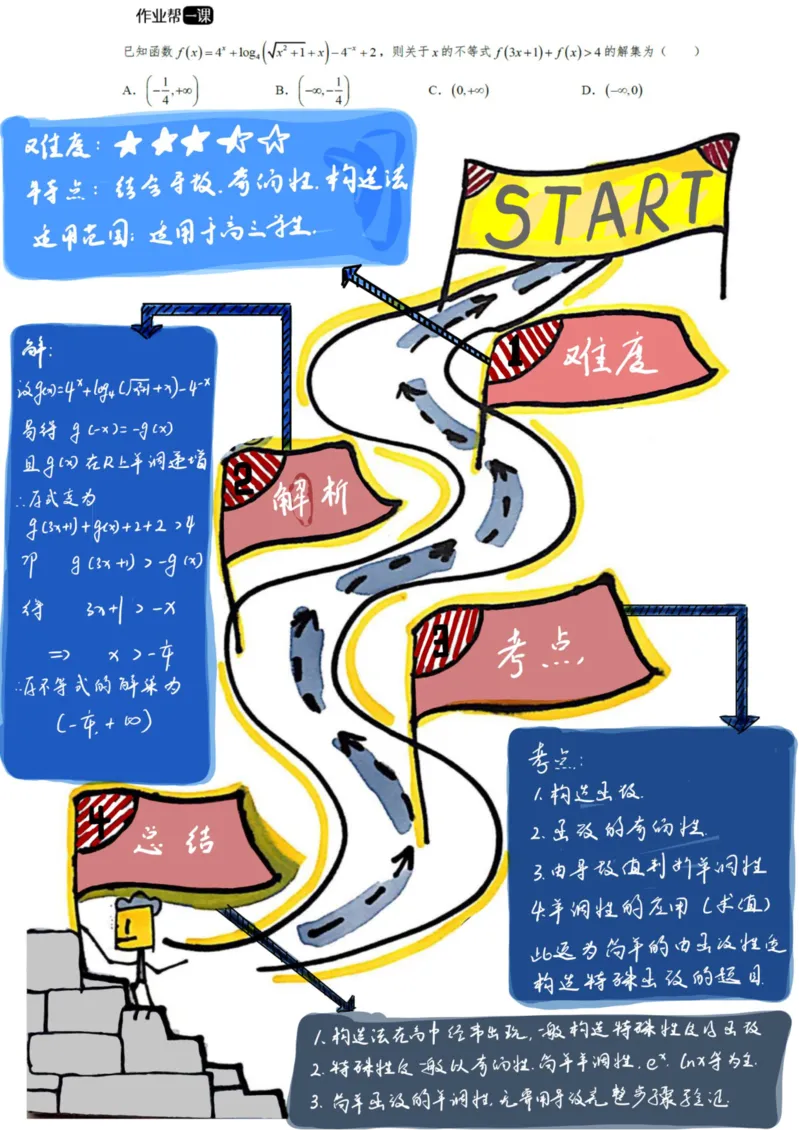 作业帮一课
已知函数 f(x)=4^x+log₄(√(x²+1)+x)-4^{-x}+2，则关于x的不等式 f(3x+1)+f(x)>4 的解集为（　　）
A. (-1/4,+∞)　B. (-∞,-1/4)　C. (0,+∞)　D. (-∞,0)
START
难度：★★★☆☆
特点：结合导数、奇偶性、构造法
适用范围：适用于高三学生.
1 难度
解：
设g(x)=4^x+log₄(√(x²+1)+x)-4^{-x}
易得 g(-x)=-g(x)
且g(x)在R上单调递增
∴原式变为
g(3x+1)+g(x)+2+2>4
即 g(3x+1)>-g(x)
得 3x+1>-x
⇒ x>-1/4
∴原不等式的解集为
(-1/4,+∞)
2 解析
3 考点
考点：
1.构造函数.
2.函数的奇偶性.
3.由导数值判断单调性
4.单调性的应用（求值）
此题为简单的由函数性质
构造特殊函数的题目.
4 总结
1.构造法在高中经常出现,一般构造特殊性质的函数
2.特殊性质一般以奇偶性.简单单调性,e^x.lnx等为主.
3.简单函数的单调性,无需用导数完整步骤验证.